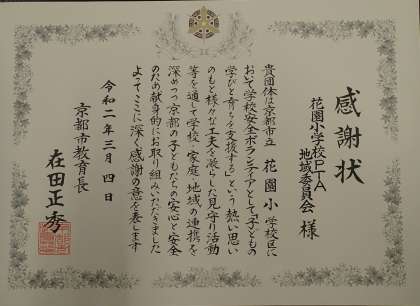 感謝状
花園小学校PTA
地域委員会 様
貴団体は京都市立 花園小 学校区に
おいて学校安全ボランティアとして「子どもの
学びと育ちを支援する」という熱い思い
のもと様々な工夫を凝らした見守り活動
等を通して学校・家庭・地域の連携を
深めつつ京都の子どもたちの安心と安全
のため献身的にお取り組みいただきました
よってここに深く感謝の意を表します
令和二年三月四日
京都市教育長
在田正秀